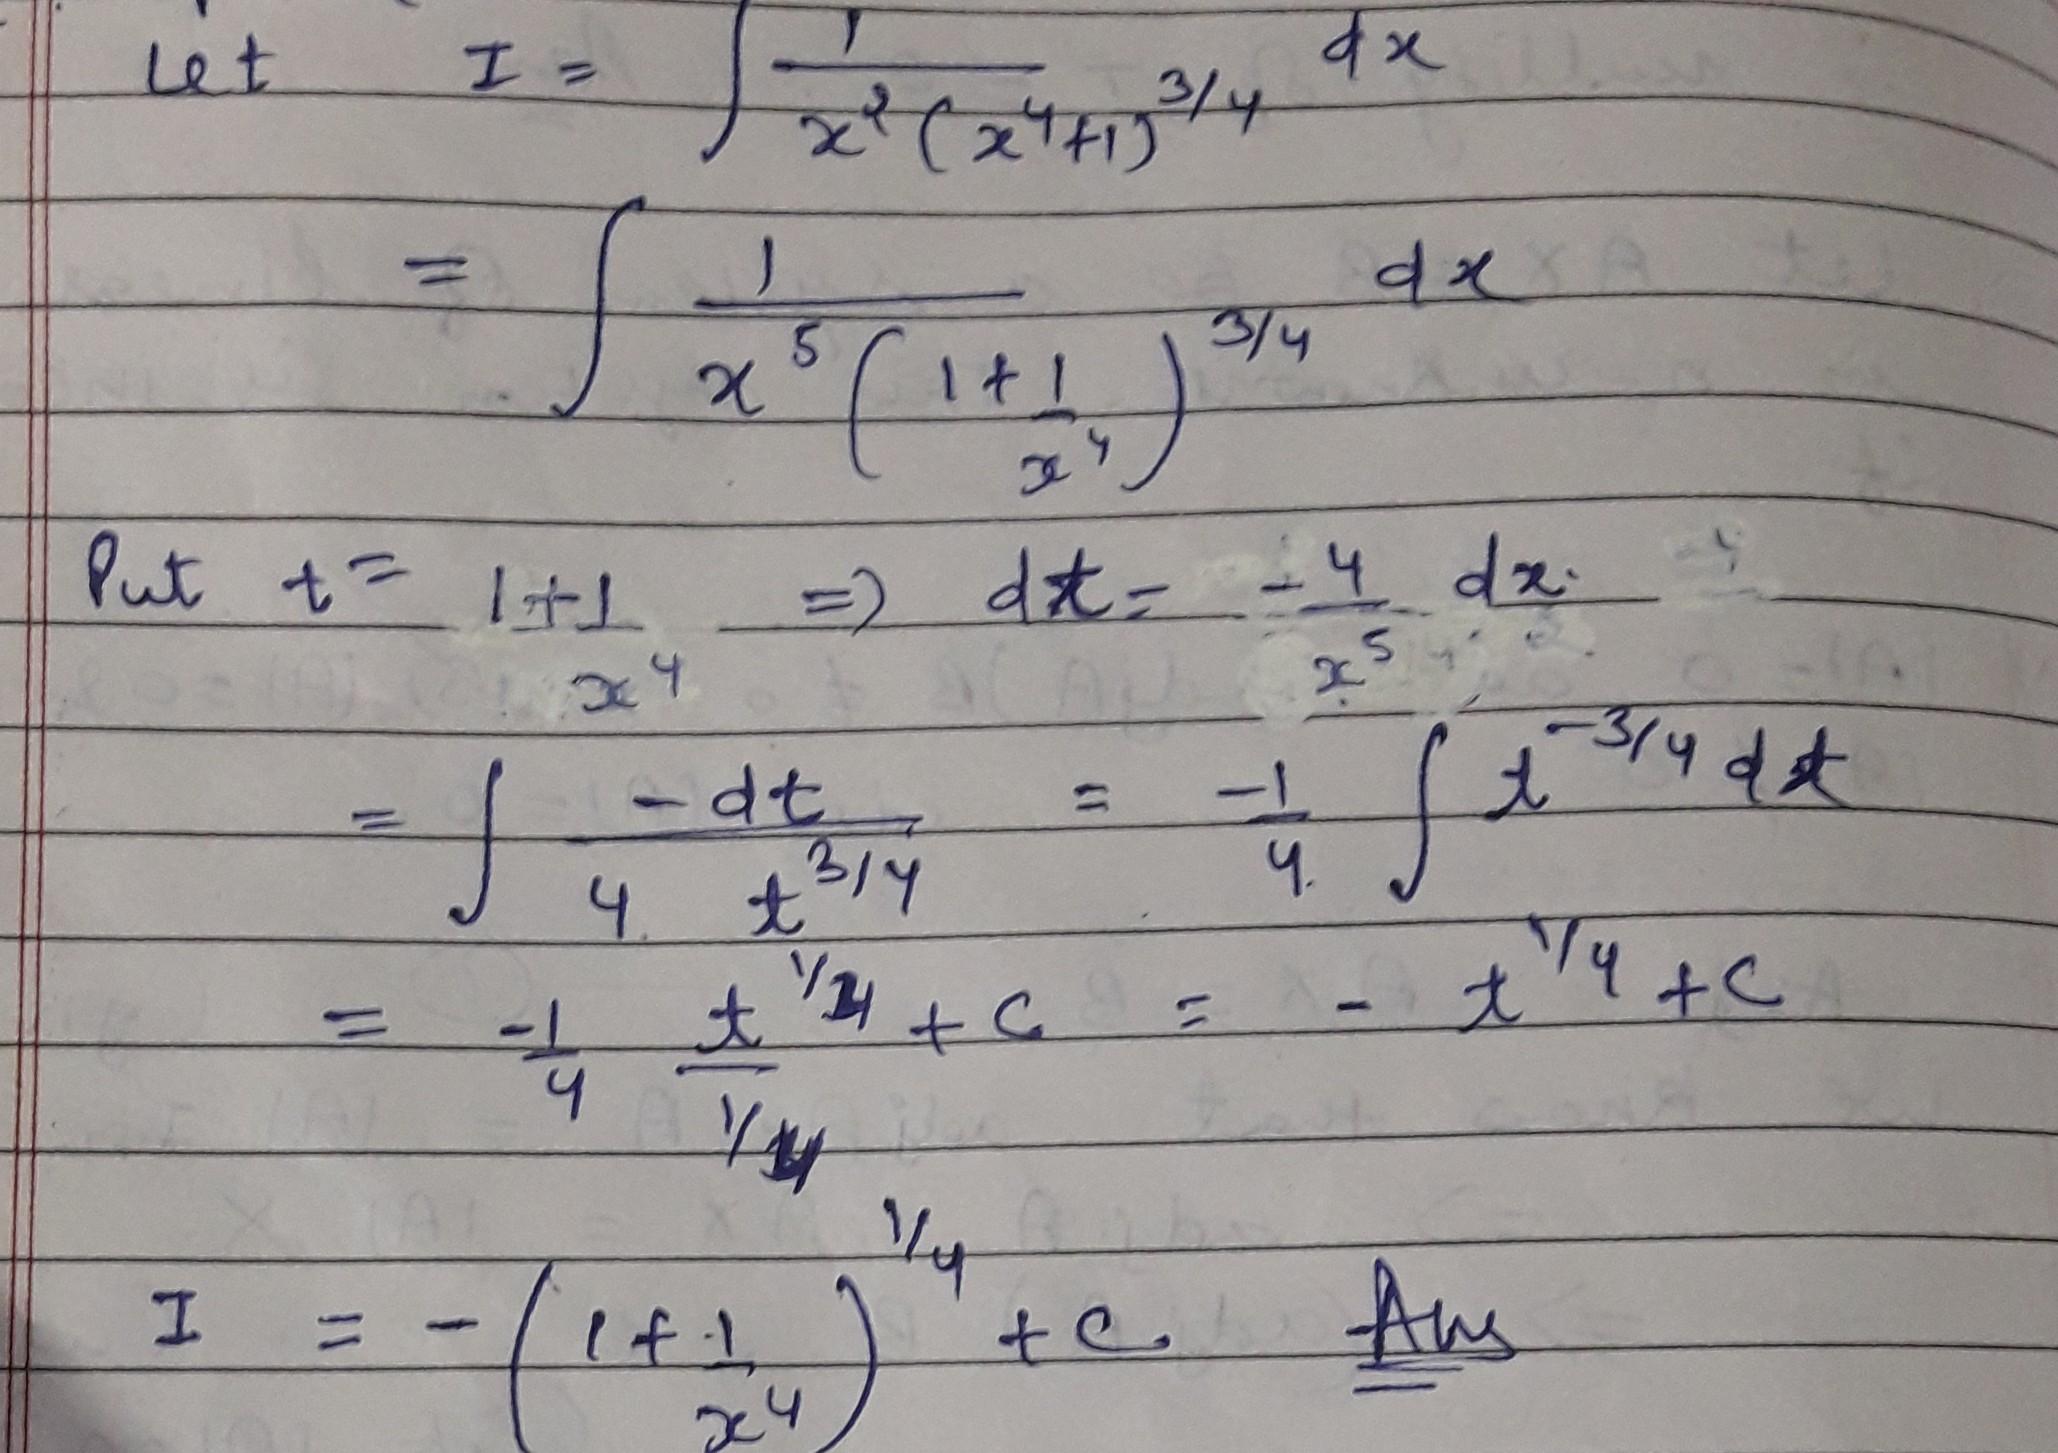 Let I = ∫ 1/(x²(x⁴+1)^3/4) dx
= ∫ 1/(x⁵(1+1/x⁴)^3/4) dx
Put t = 1+1/x⁴ => dt = -4/x⁵ dx.
= ∫ -dt/(4 t^3/4) = -1/4 ∫ t^-3/4 dt
= -1/4 t^1/4/(1/4) + C = - t^1/4 + C
I = -(1+1/x⁴)^1/4 + C. Ans